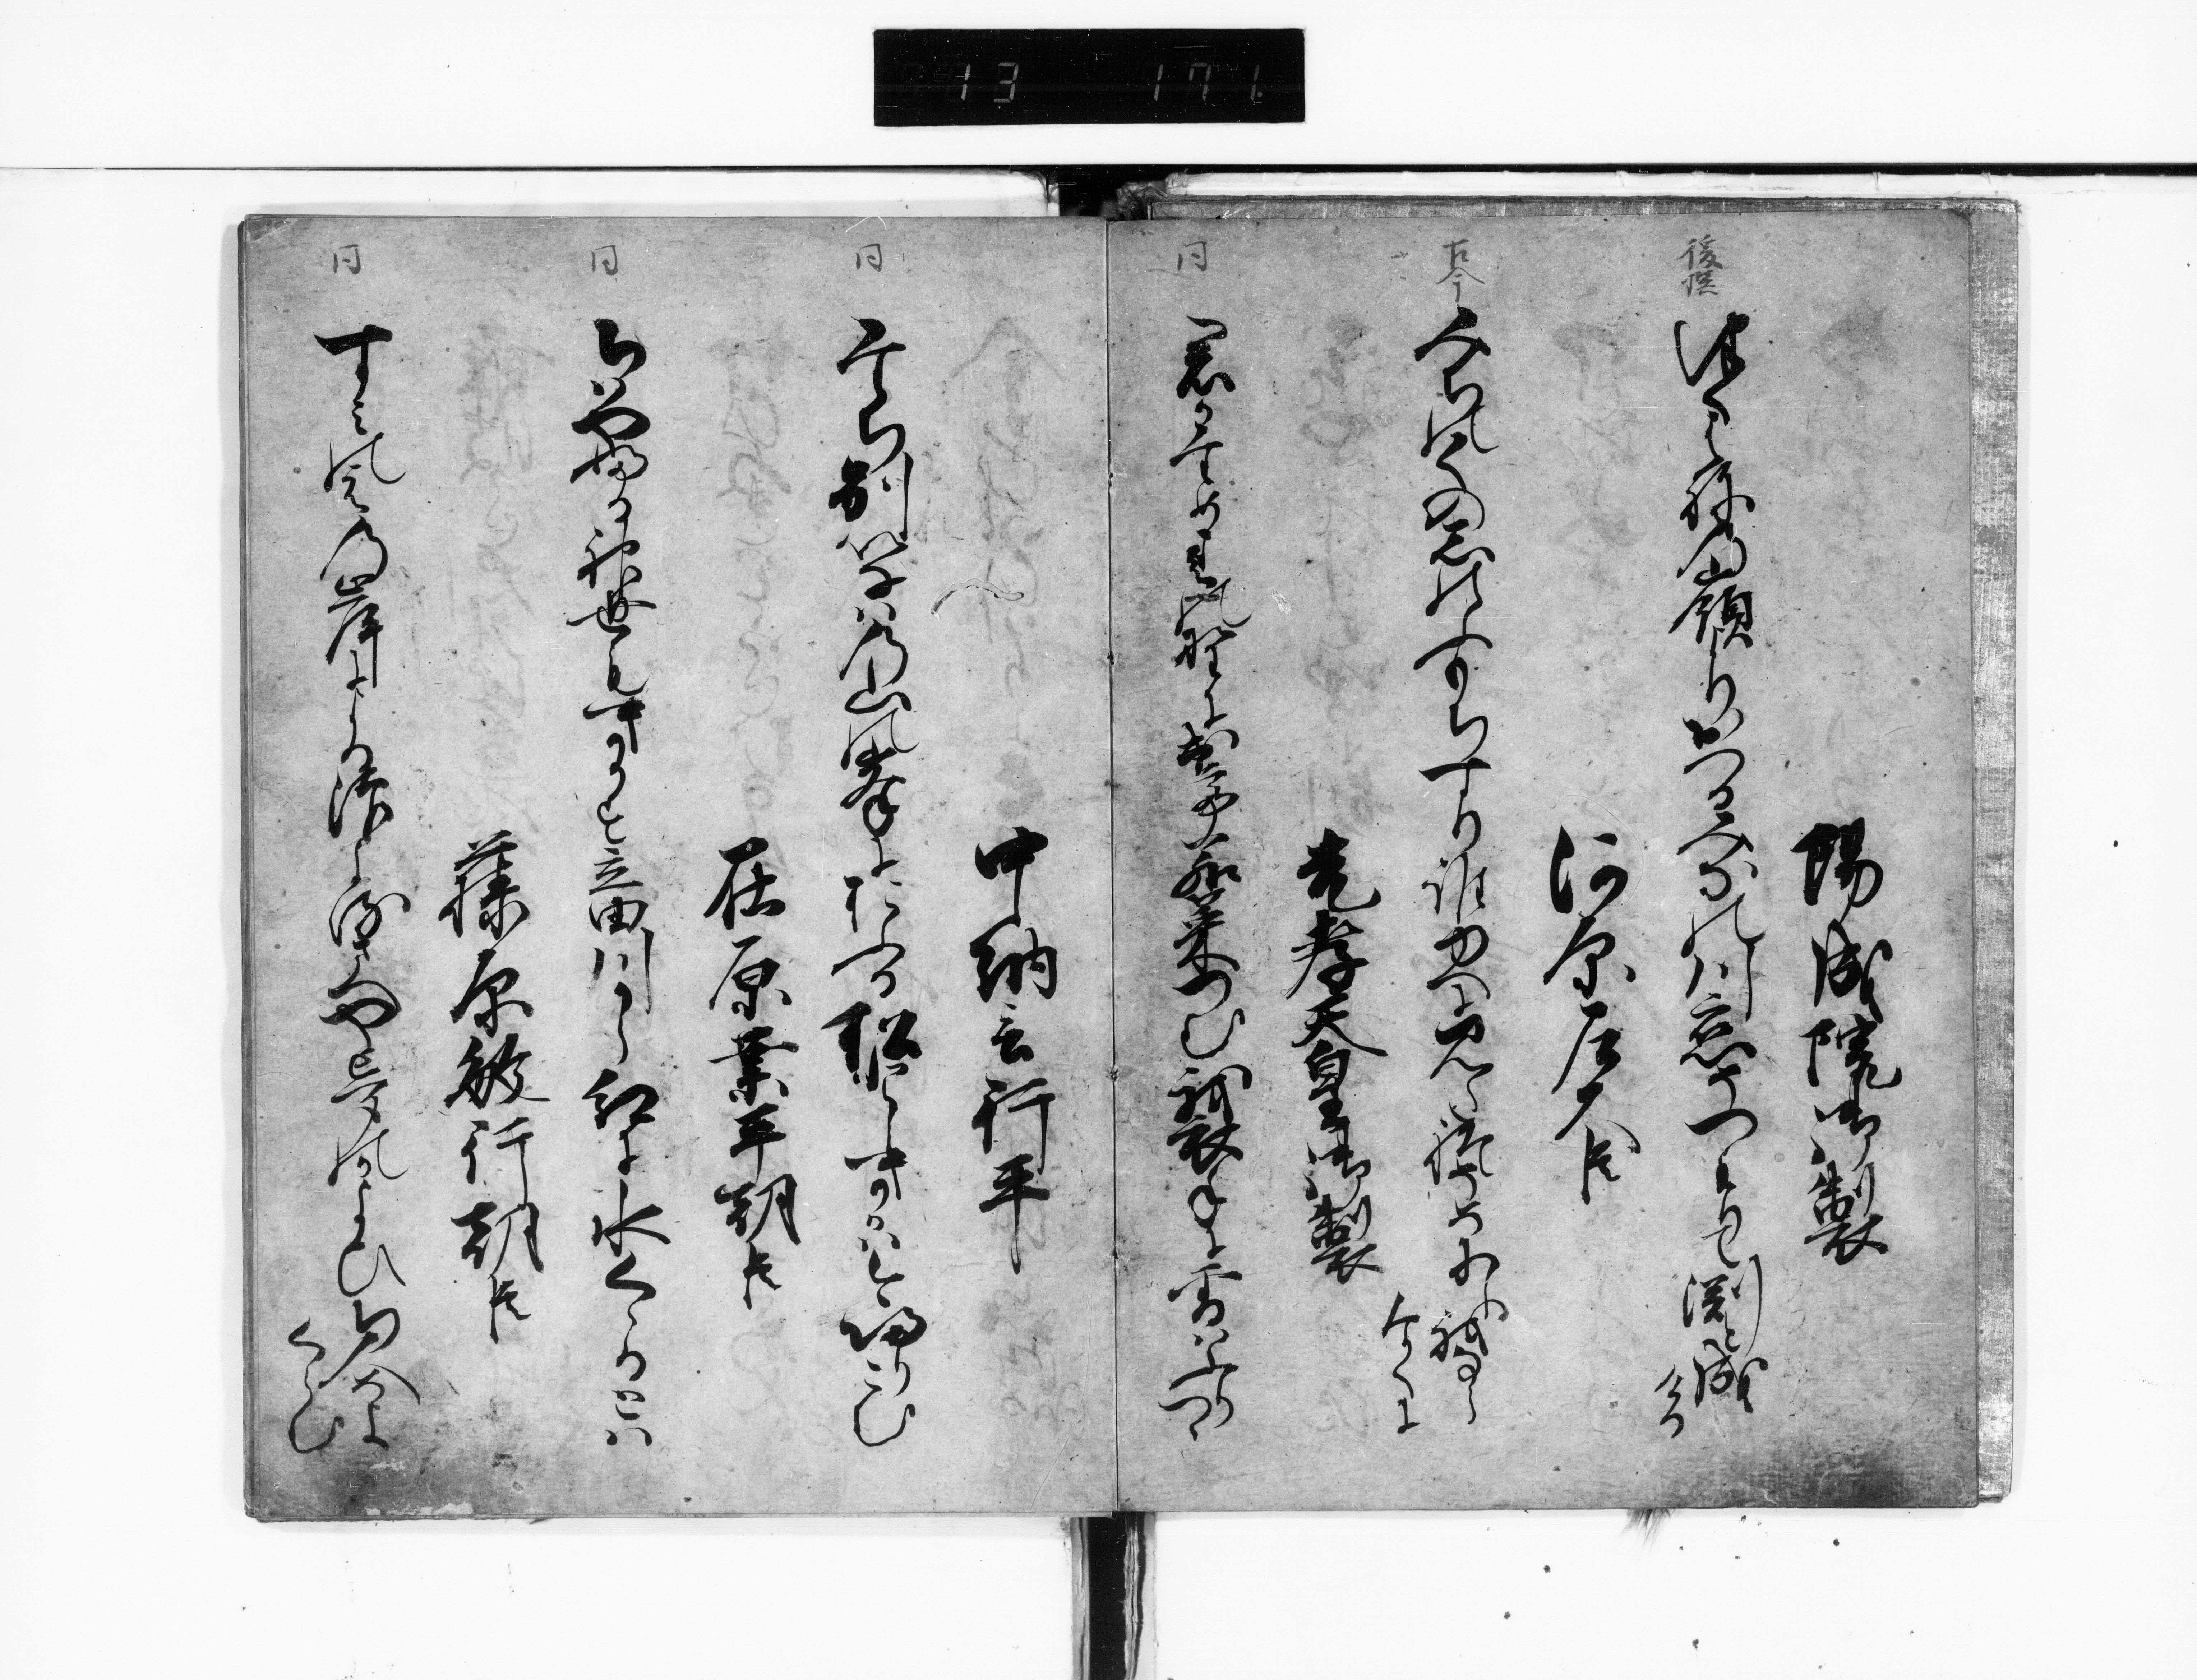 13 171
陽成院御製
後撰
つくはねの嶺よりおつるみなの川恋そつもりて淵と成
ける
河原左大臣
古今
みちのくの忍ふもちすり誰ゆへに見たれそめにし我なら
なくに
光孝天皇御製
同
君かため春の野に出て若菜つむ我衣手に雪はふりつゝ
中納言行平
同
立わかれいなはの山の峯におふる松としきかは今帰りこむ
在原業平朝臣
同
ちはやふる神世もきかす立田川から紅に水くゝるとは
藤原敏行朝臣
同
すみの江の岸による浪よるさへや夢のかよひち人めよ
くらむ